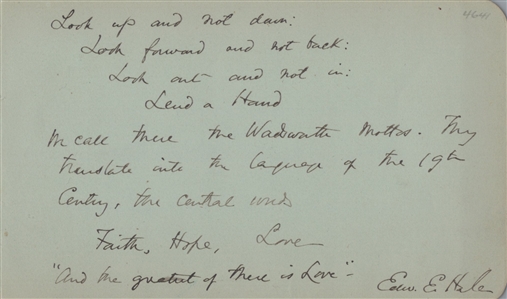 4641
Look up and not down:
Look forward and not back:
Look out and not in:
Lend a Hand
We call these the Wadsworth Mottos. They
translate into the language of the 19th
Century, the central words
Faith, Hope, Love
"And the greatest of these is Love"-
Edw. E. Hale